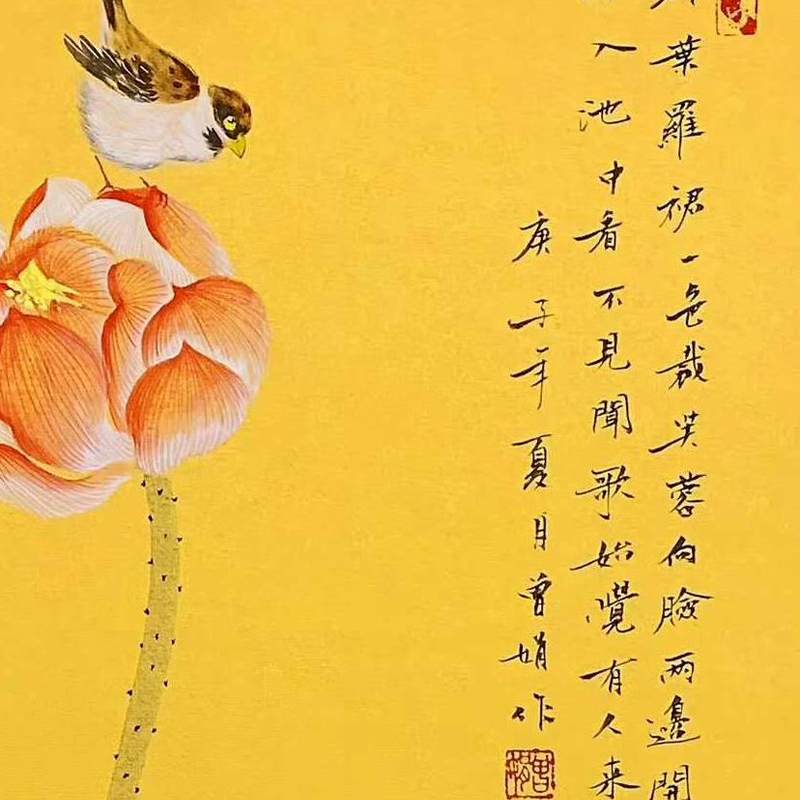 葉羅裙一色裁芙蓉向臉兩邊開
入池中看不見聞歌始覺有人来
庚子年夏月曾娟作